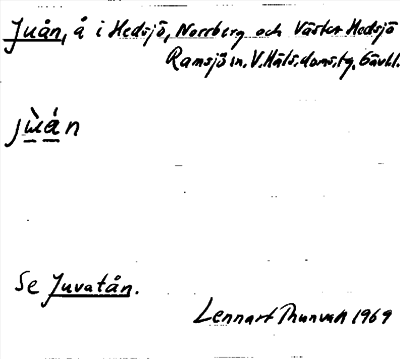 Juån, å i Hedsjö, Norrberg och Väster Hedsjö
Ramsjö sn, V. Häls. doms. tg, Gävl.
jùá̱n
Se Juvatån.
Lennart Thunvall 1969